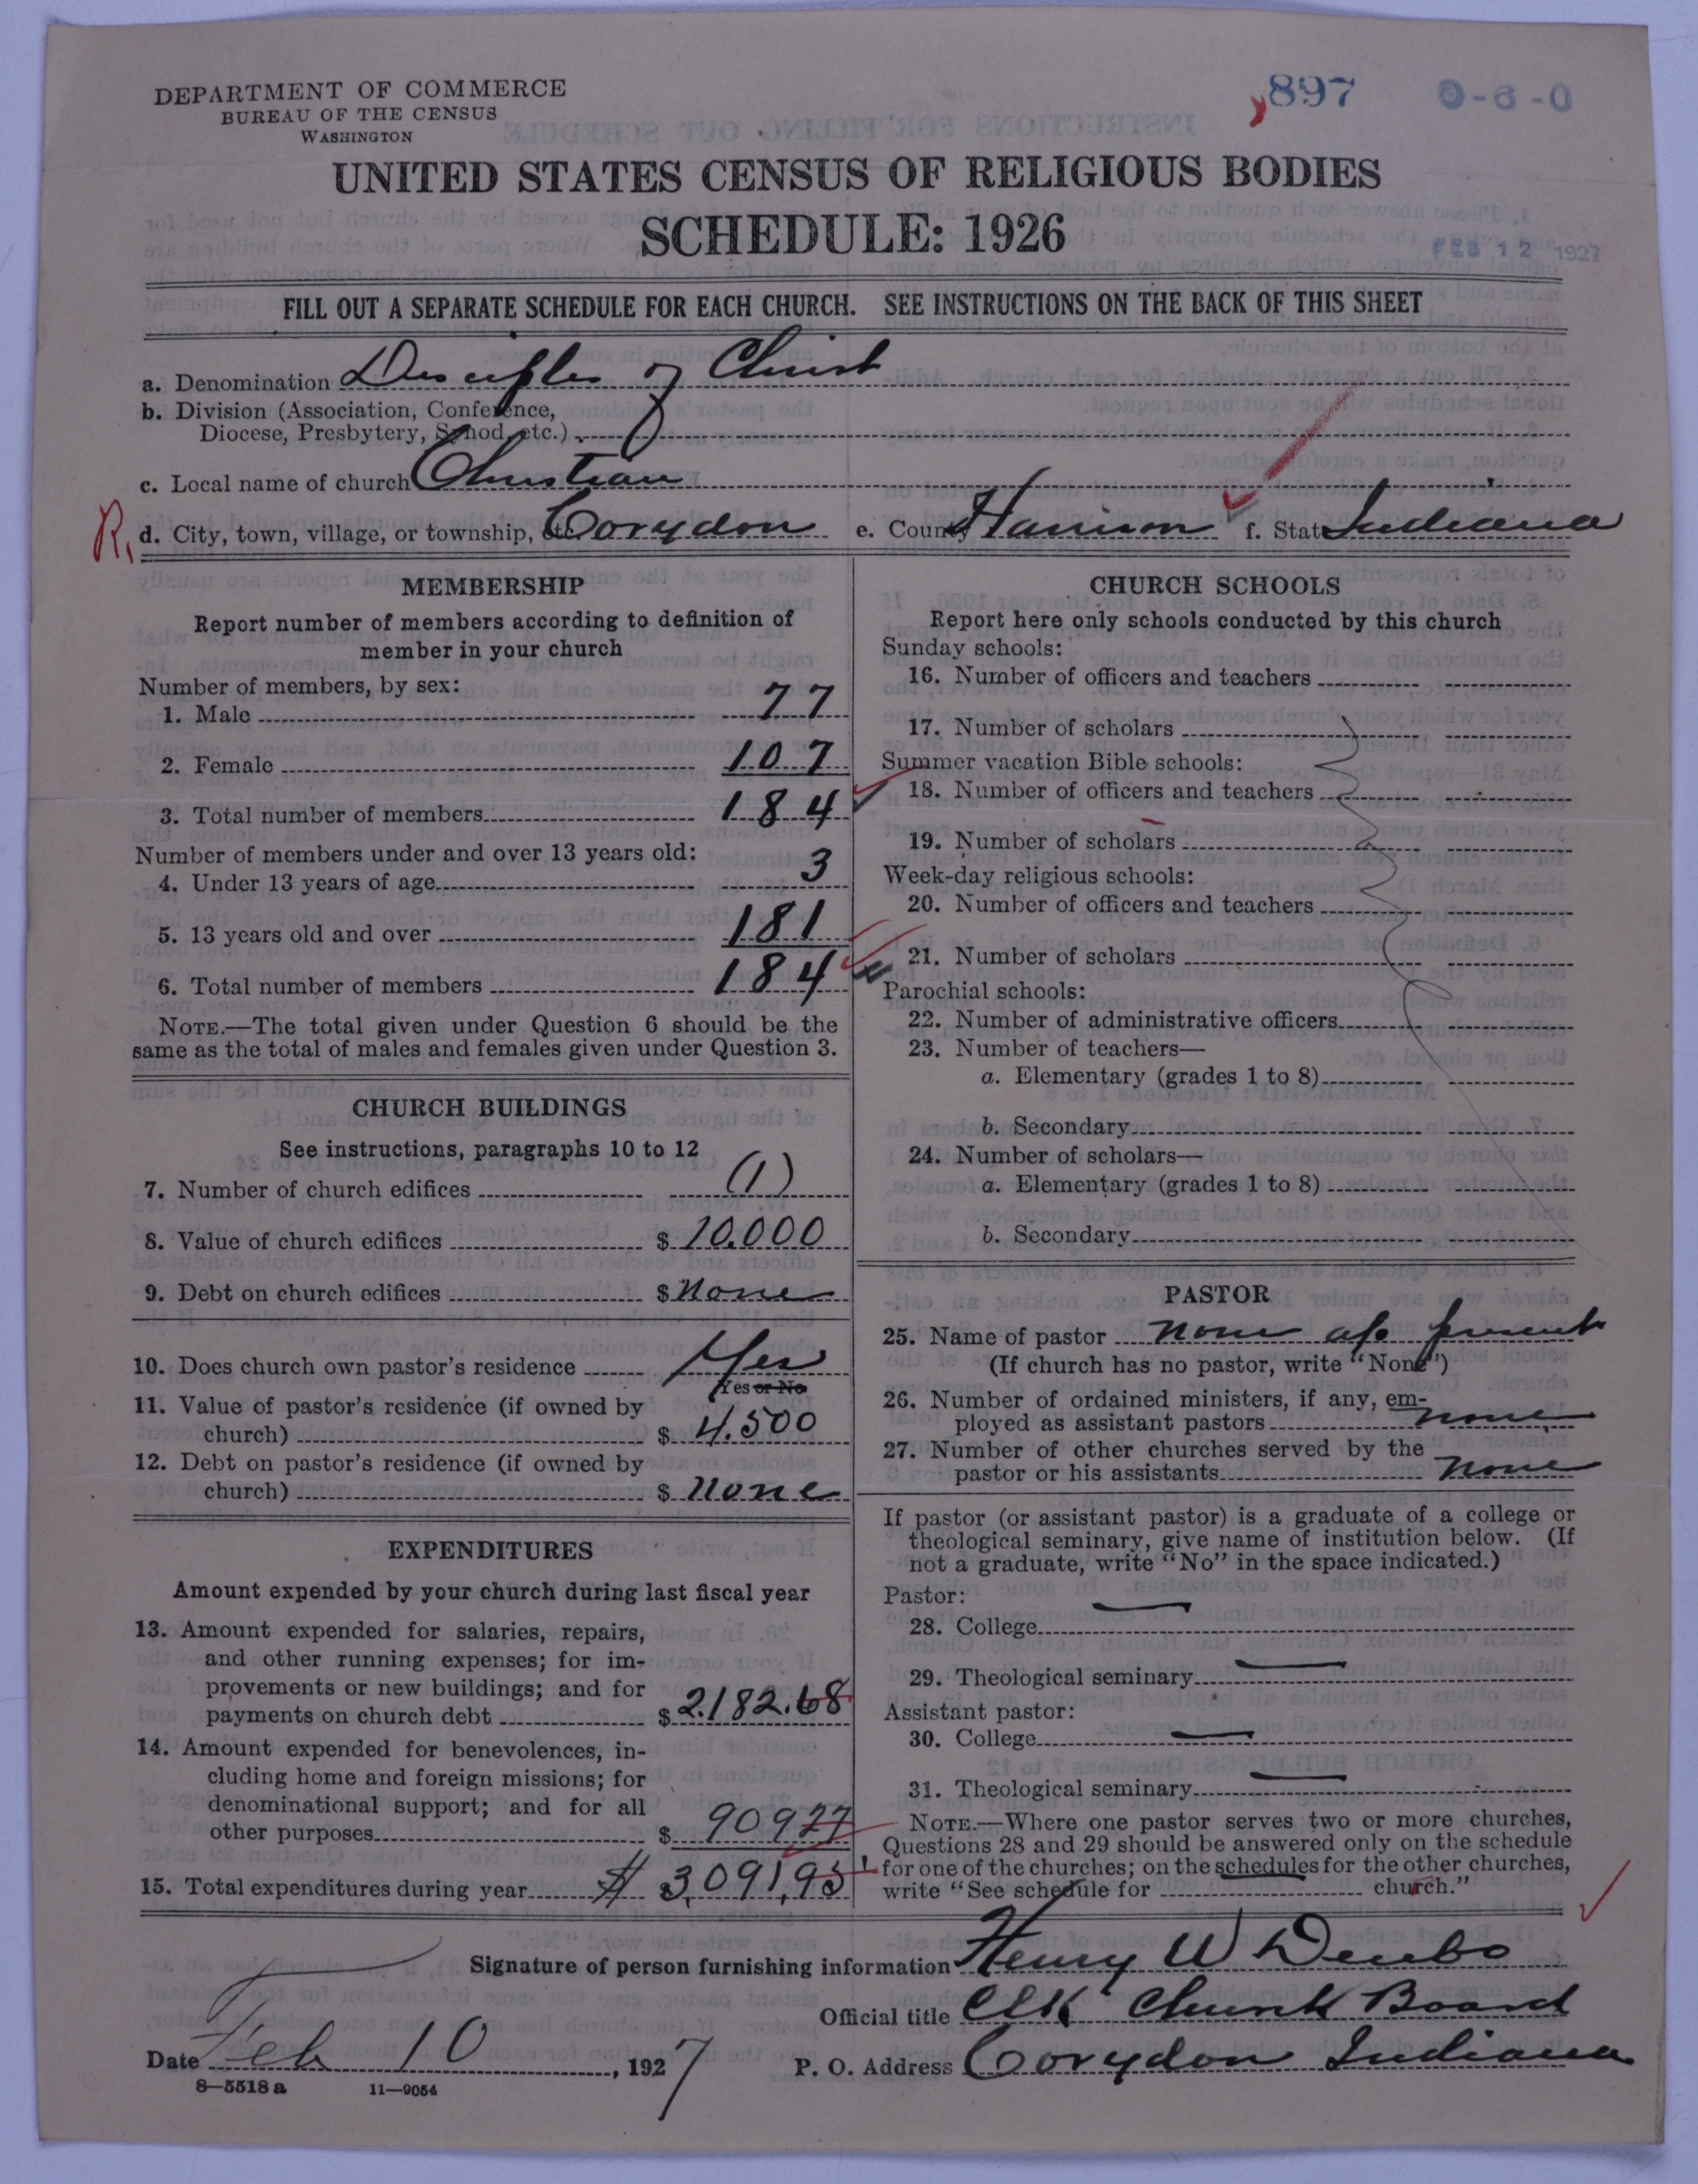 DEPARTMENT OF COMMERCE
BUREAU OF THE CENSUS
WASHINGTON
897 0-6-0
UNITED STATES CENSUS OF RELIGIOUS BODIES
SCHEDULE: 1926
FEB 12 1927
FILL OUT A SEPARATE SCHEDULE FOR EACH CHURCH. SEE INSTRUCTIONS ON THE BACK OF THIS SHEET
a. Denomination Disciples of Christ
b. Division (Association, Conference,
Diocese, Presbytery, Synod, etc.)
c. Local name of church Christian
R. d. City, town, village, or township, etc. Corydon e. County Harrison f. State Indiana
MEMBERSHIP
Report number of members according to definition of
member in your church
Number of members, by sex:
1. Male 77
2. Female 107
3. Total number of members 184
Number of members under and over 13 years old:
4. Under 13 years of age 3
5. 13 years old and over 181
6. Total number of members 184
NOTE.—The total given under Question 6 should be the
same as the total of males and females given under Question 3.
CHURCH BUILDINGS
See instructions, paragraphs 10 to 12
7. Number of church edifices (1)
8. Value of church edifices $ 10.000
9. Debt on church edifices $ None
10. Does church own pastor's residence Yes
Yes or No
11. Value of pastor's residence (if owned by
church) $ 4.500
12. Debt on pastor's residence (if owned by
church) $ None
EXPENDITURES
Amount expended by your church during last fiscal year
13. Amount expended for salaries, repairs,
and other running expenses; for im-
provements or new buildings; and for
payments on church debt $ 2.182.68
14. Amount expended for benevolences, in-
cluding home and foreign missions; for
denominational support; and for all
other purposes $ 90927
15. Total expenditures during year $ $ 3,091,95
CHURCH SCHOOLS
Report here only schools conducted by this church
Sunday schools:
16. Number of officers and teachers
17. Number of scholars
Summer vacation Bible schools:
18. Number of officers and teachers
19. Number of scholars
Week-day religious schools:
20. Number of officers and teachers
21. Number of scholars
Parochial schools:
22. Number of administrative officers
23. Number of teachers—
a. Elementary (grades 1 to 8)
b. Secondary
24. Number of scholars—
a. Elementary (grades 1 to 8)
b. Secondary
PASTOR
25. Name of pastor None present
(If church has no pastor, write "None")
26. Number of ordained ministers, if any, em-
ployed as assistant pastors none
27. Number of other churches served by the
pastor or his assistants none
If pastor (or assistant pastor) is a graduate of a college or
theological seminary, give name of institution below. (If
not a graduate, write "No" in the space indicated.)
Pastor:
28. College
29. Theological seminary
Assistant pastor:
30. College
31. Theological seminary
NOTE.—Where one pastor serves two or more churches,
Questions 28 and 29 should be answered only on the schedule
for one of the churches; on the schedules for the other churches,
write "See schedule for church."
Signature of person furnishing information Henry W Denbo
Official title Clk Church Board
Date Feb 10, 1927 P. O. Address Corydon Indiana
8-5518 a 11-9054